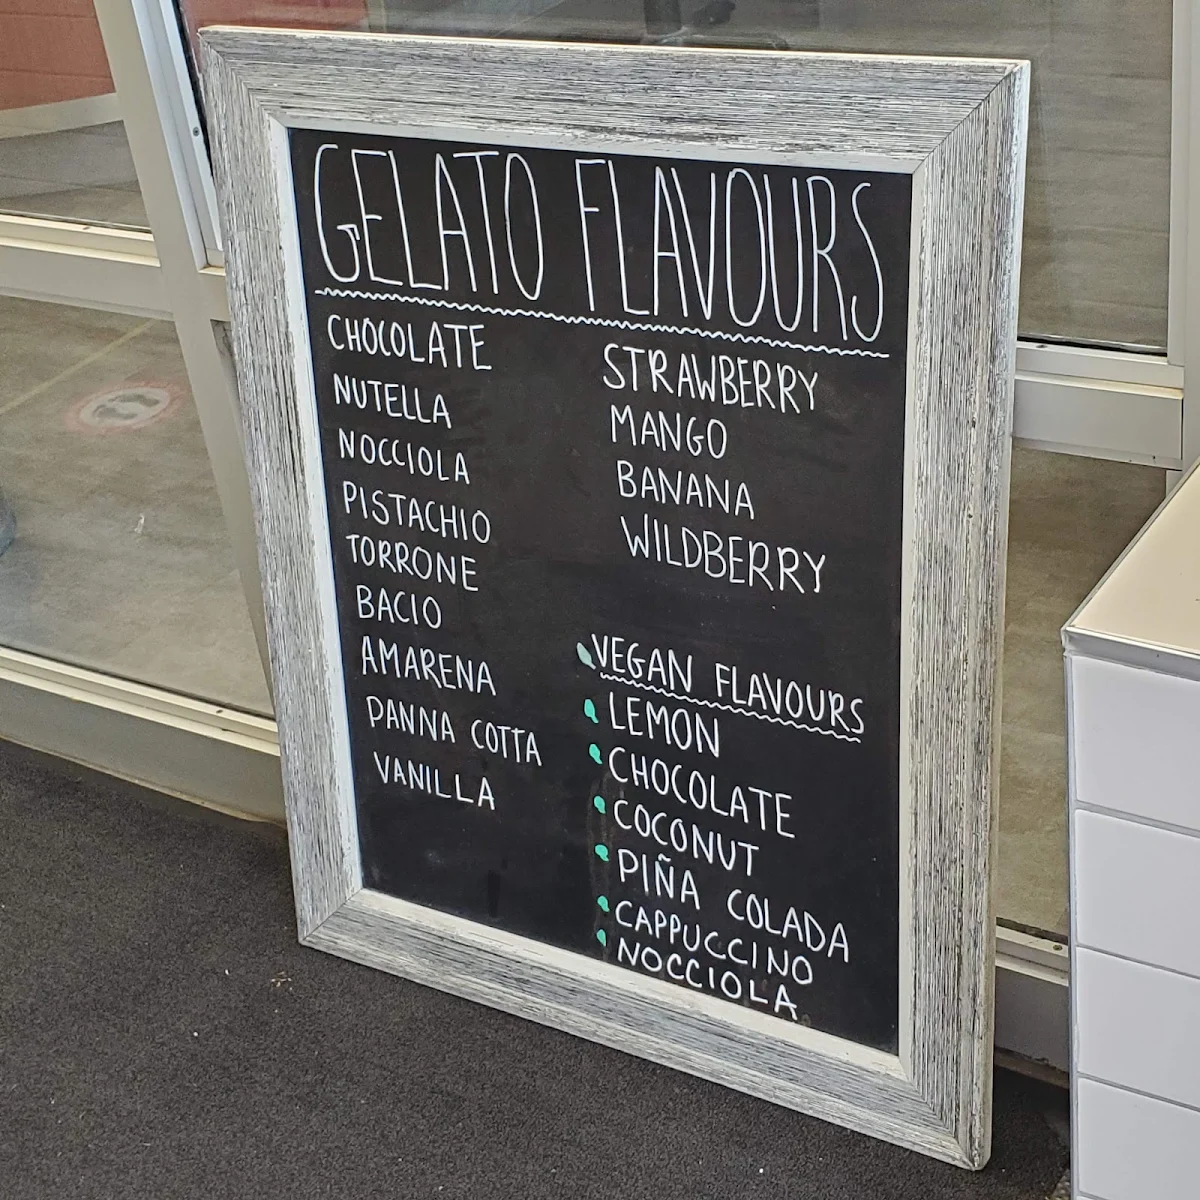 GELATO FLAVOURS
CHOCOLATE
NUTELLA
NOCCIOLA
PISTACHIO
TORRONE
BACIO
AMARENA
PANNA COTTA
VANILLA
STRAWBERRY
MANGO
BANANA
WILDBERRY
VEGAN FLAVOURS
LEMON
CHOCOLATE
COCONUT
PIÑA COLADA
CAPPUCCINO
NOCCIOLA